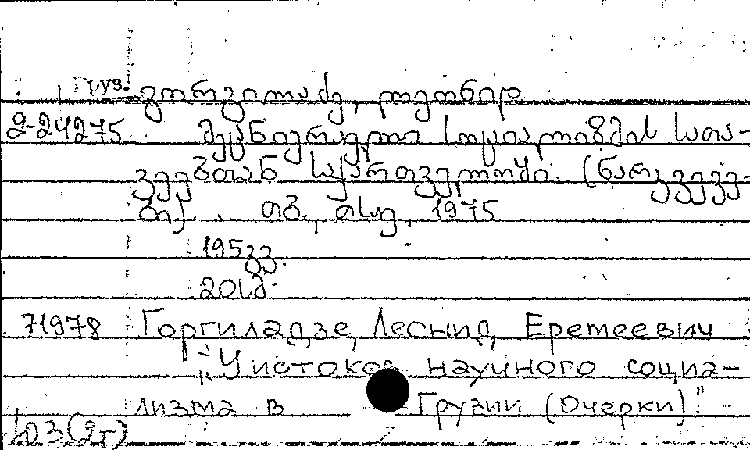 Груз. გორგილაძე, ლეონიდ
2-24275 მეცნიერული სოციალიზმის სათა-
ვეებთან საქართველოში. (ნარკვევე-
ბი). თბ., თსუ, 1975
195გვ.
20სმ.
71978 Горгиладзе, Леонид, Еремеевич
"У истоков научного социа-
лизма в Грузии (Очерки)"